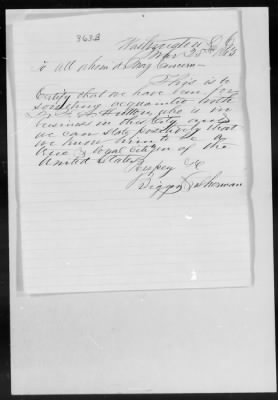 363B
Washington D.C.
Mar 25th 1863
To all whom it may Concern
This is to
Certify that we have been for
some time acquainted with
Hutton, who is in
business in this City and
we can state positively that
we know him to be a
true & loyal Citizen of the
United States
Respcy &c
Biggs Sherman